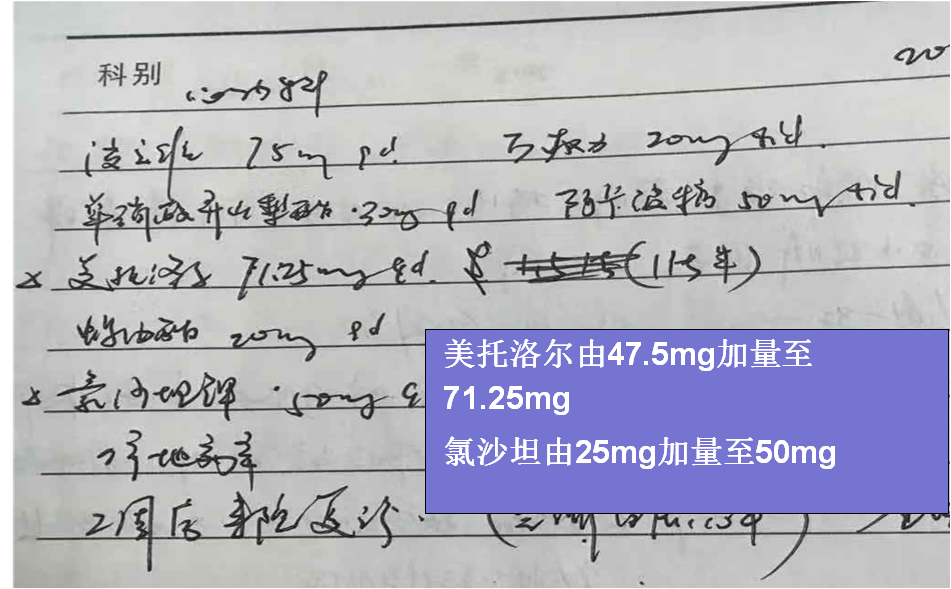 科别 20
波立维 75mg qd. 万爽力 20mg tid.
单硝酸异山梨酯 30mg qd 阿卡波糖 50mg tid.
× 美托洛尔 71.25mg qd. (1片半)
20mg qd
× 氯沙坦钾 50mg
停地高辛
2周后来院复诊.
美托洛尔由47.5mg加量至
71.25mg
氯沙坦由25mg加量至50mg